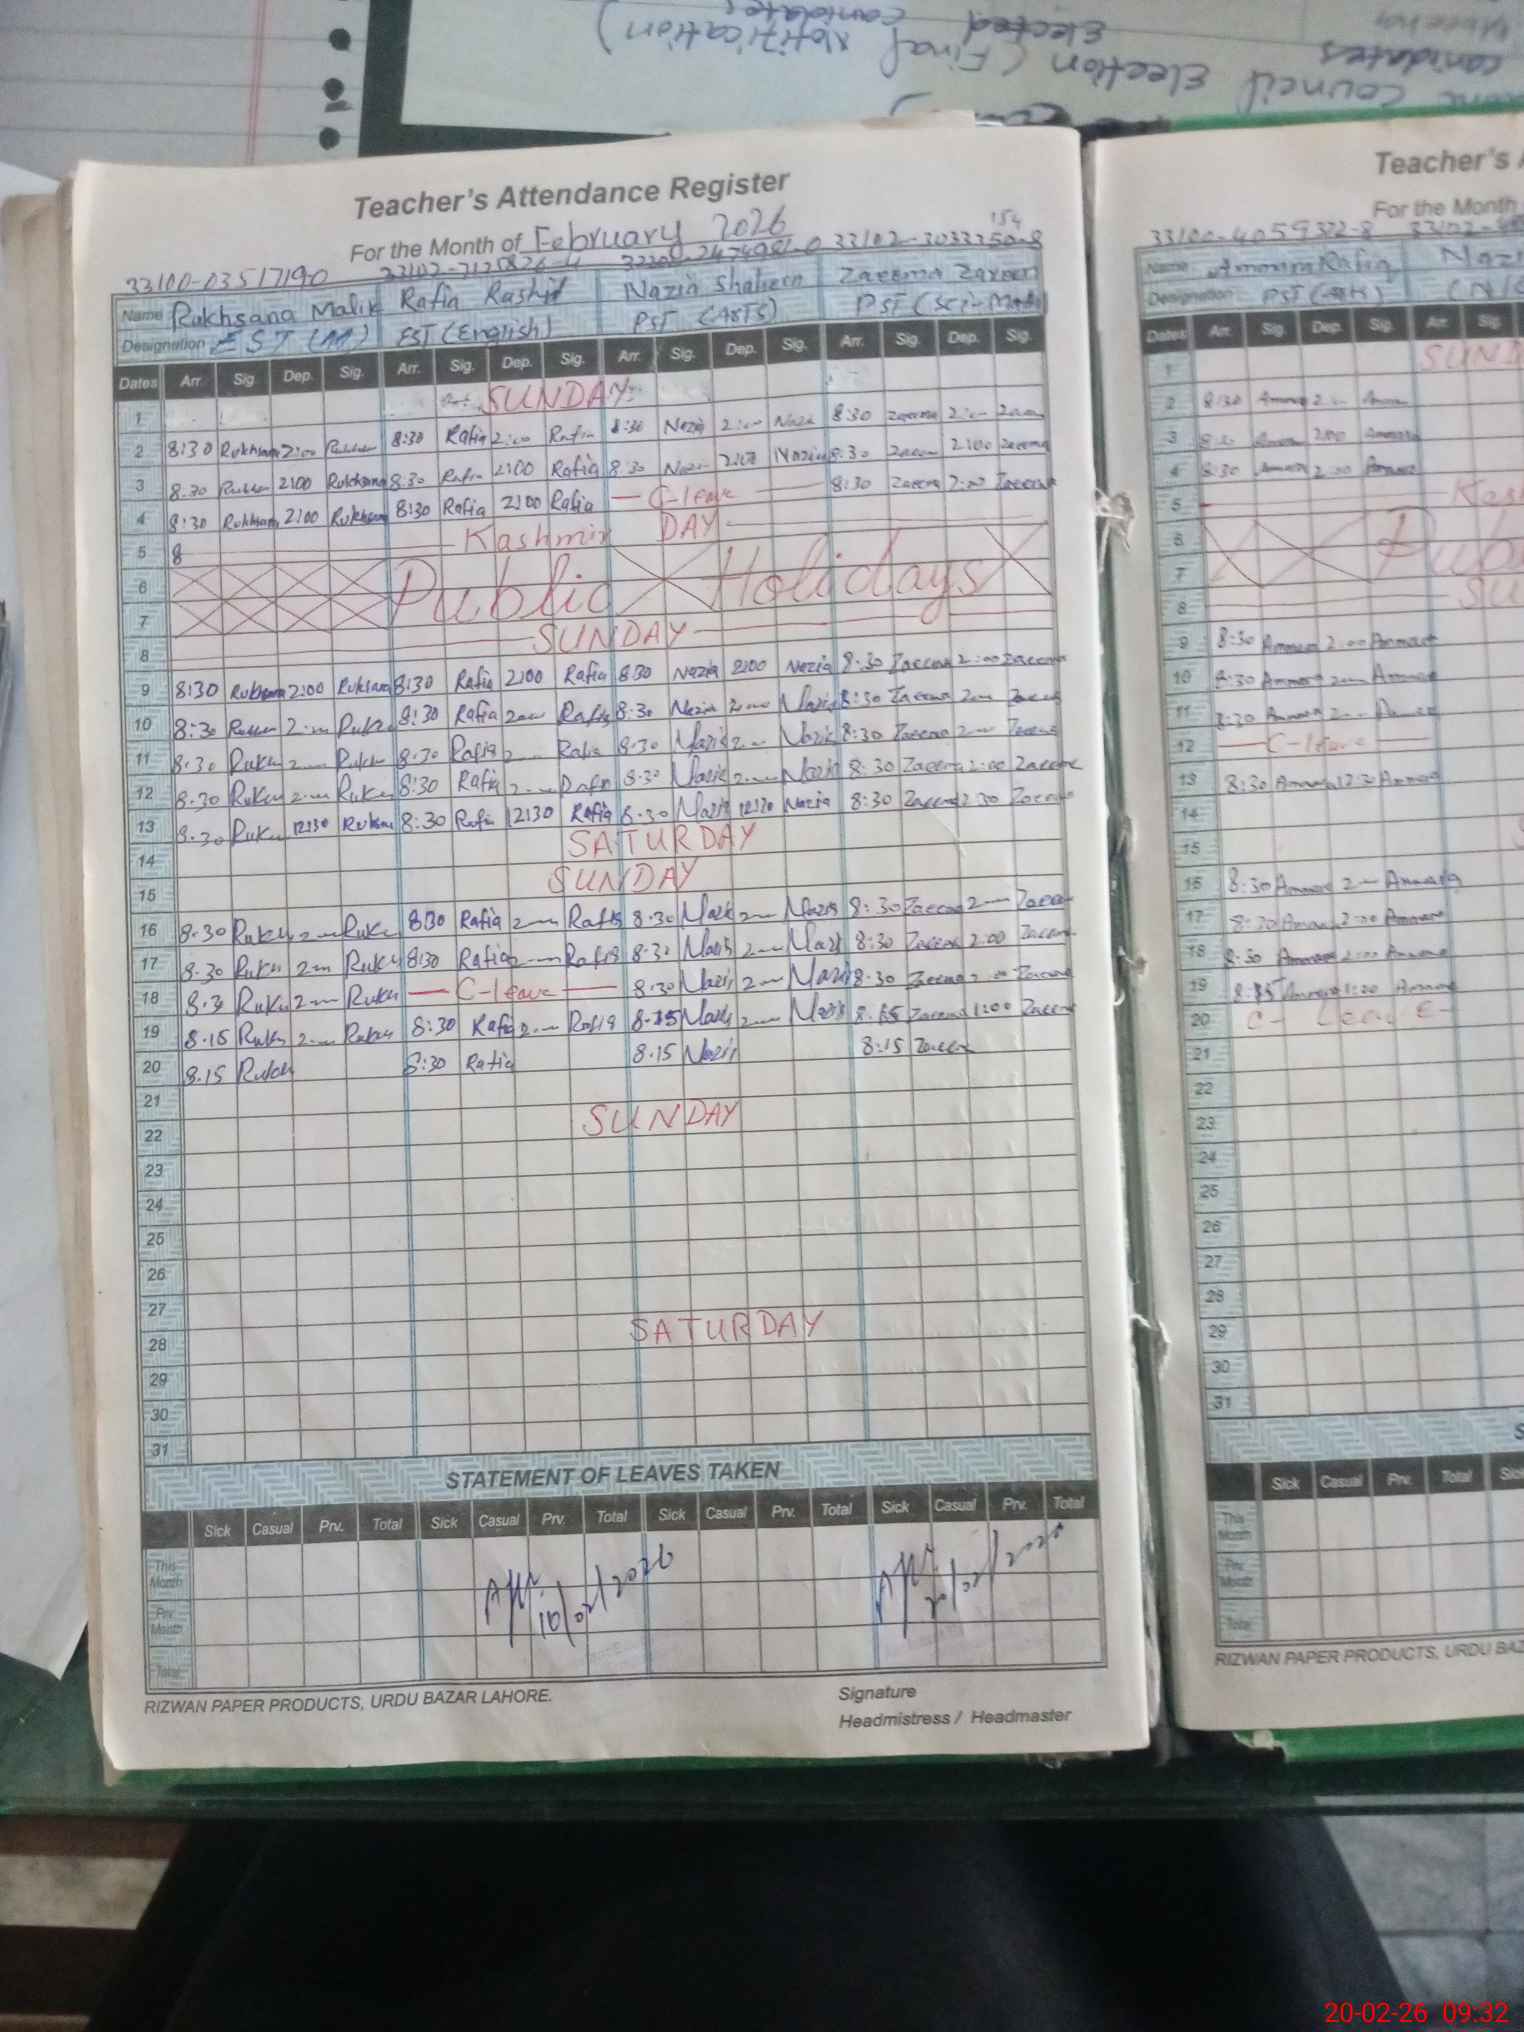 canidates
Elected
Council Election (Final Notification)
canidates
Teacher's Attendance Register
For the Month of February 2026
154
33100-03517190 33102-3033250-8
Name Rukhsana Malik Rafia Rashid Nazia Shaheen Zareena Zareen
Designation EST (M) EST (English) PST (ARTS) PST (Sci-Math)
Dates Arr. Sig. Dep. Sig. Arr. Sig. Dep. Sig. Arr. Sig. Dep. Sig. Arr. Sig. Dep. Sig.
1 SUNDAY
2 8:30 Rukhsana 2:00 8:30 Rafia 2:00 Rafia 8:30 Nazia 2:00 Nazia 8:30 Zareena 2:00
3 8:30 2:00 Rukhsana 8:30 Rafia 2:00 Rafia 8:30 Nazia 2:00 Nazia 8:30 2:00 Zareena
4 8:30 Rukhsana 2:00 Rukhsana 8:30 Rafia 2:00 Rafia C-leave 8:30 Zareena 2:00 Zareena
5 8 Kashmir DAY
6 Public Holidays
7
8 SUNDAY
9 8:30 Rukhsana 2:00 Rukhsana 8:30 Rafia 2:00 Rafia 8:30 Nazia 2:00 Nazia 8:30 Zareena 2:00 Zareena
10 8:30 2:00 Ruku 8:30 Rafia 2:00 Rafia 8:30 Nazia 2:00 Nazia 8:30 Zareena 2:00 Zareena
11 8:30 Ruku 2:00 Ruku 8:30 Rafia 2:00 Rafia 8:30 Nazia 2:00 Nazia 8:30 Zareena 2:00 Zareena
12 8:30 Ruku 2:00 Ruku 8:30 Rafia 2:00 Rafia 8:30 Nazia 2:00 Nazia 8:30 Zareena 2:00 Zareena
13 8:30 Ruku 12:30 Ruksana 8:30 Rafia 12:30 Rafia 8:30 Nazia 12:30 Nazia 8:30 Zareena 12:30 Zareena
14 SATURDAY
15 SUNDAY
16 8:30 Ruku 2:00 Ruku 8:30 Rafia 2:00 Rafia 8:30 Nazia 2:00 Nazia 8:30 Zareena 2:00 Zareena
17 8:30 Ruku 2:00 Ruku 8:30 Rafia 2:00 Rafia 8:30 Nazia 2:00 Nazia 8:30 Zareena 2:00 Zareena
18 8:30 Ruku 2:00 Ruku C-leave 8:30 Nazia 2:00 Nazia 8:30 Zareena 2:00 Zareena
19 8:15 Ruku 2:00 Ruku 8:30 Rafia 2:00 Rafia 8:15 Nazia 2:00 Nazia 8:15 Zareena 1:00 Zareena
20 8:15 Ruku 8:30 Rafia 8:15 Nazia 8:15 Zareena
21
22 SUNDAY
23
24
25
26
27
28 SATURDAY
29
30
31
STATEMENT OF LEAVES TAKEN
Sick Casual Prv. Total Sick Casual Prv. Total Sick Casual Prv. Total Sick Casual Prv. Total
This Month
Prv. Month
Total
10/02/2026 20/02/2026
RIZWAN PAPER PRODUCTS, URDU BAZAR LAHORE.
Signature
Headmistress / Headmaster
Teacher's
For the Month
33100-4059322-8
Name Ammara Rafiq
Designation PST
Dates Arr. Sig. Dep. Sig. Arr. Sig.
1
2 8:30 Ammara 2:00 Ammara
3 8:30 Ammara 2:00 Ammara
4 8:30 Ammara 2:00 Ammara
5
6
7
8
9 8:30 Ammara 2:00 Ammara
10 8:30 Ammara 2:00 Ammara
11 8:30 Ammara 2:00 Ammara
12 C-leave
13 8:30 Ammara 12:30 Ammara
14
15
16 8:30 Ammara 2:00 Ammara
17 8:30 Ammara 2:00 Ammara
18 8:30 Ammara 2:00 Ammara
19 8:15 Ammara 1:00 Ammara
20 C-Leave
21
22
23
24
25
26
27
28
29
30
31
Sick Casual Prv. Total
This Month
Prv. Month
Total
RIZWAN PAPER PRODUCTS, URDU
20-02-26 09:32